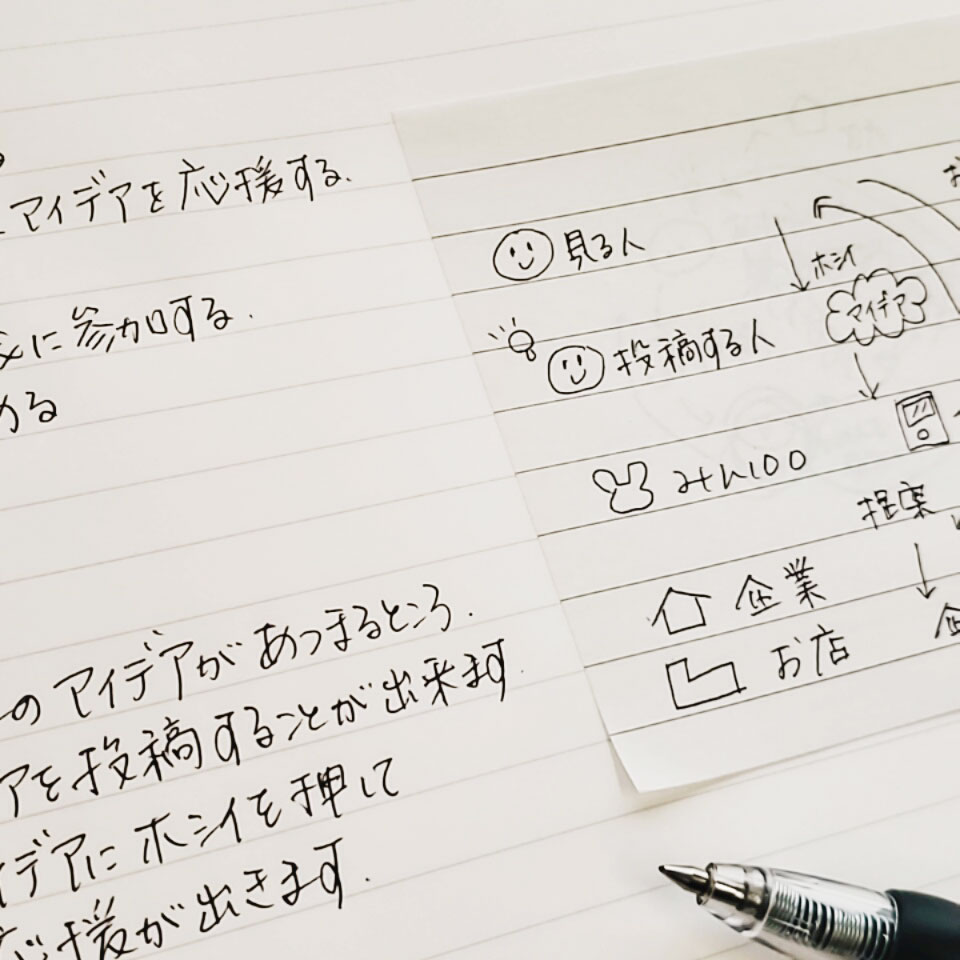 アイデアを応援する.
に参加する.
める
のアイデアがあつまるところ.
アを投稿することが出来ます.
イデアにホシイを押して
応援が出きます.
見る人
ホシイ
アイデア
投稿する人
みん100
提案
企業
企
お店
お